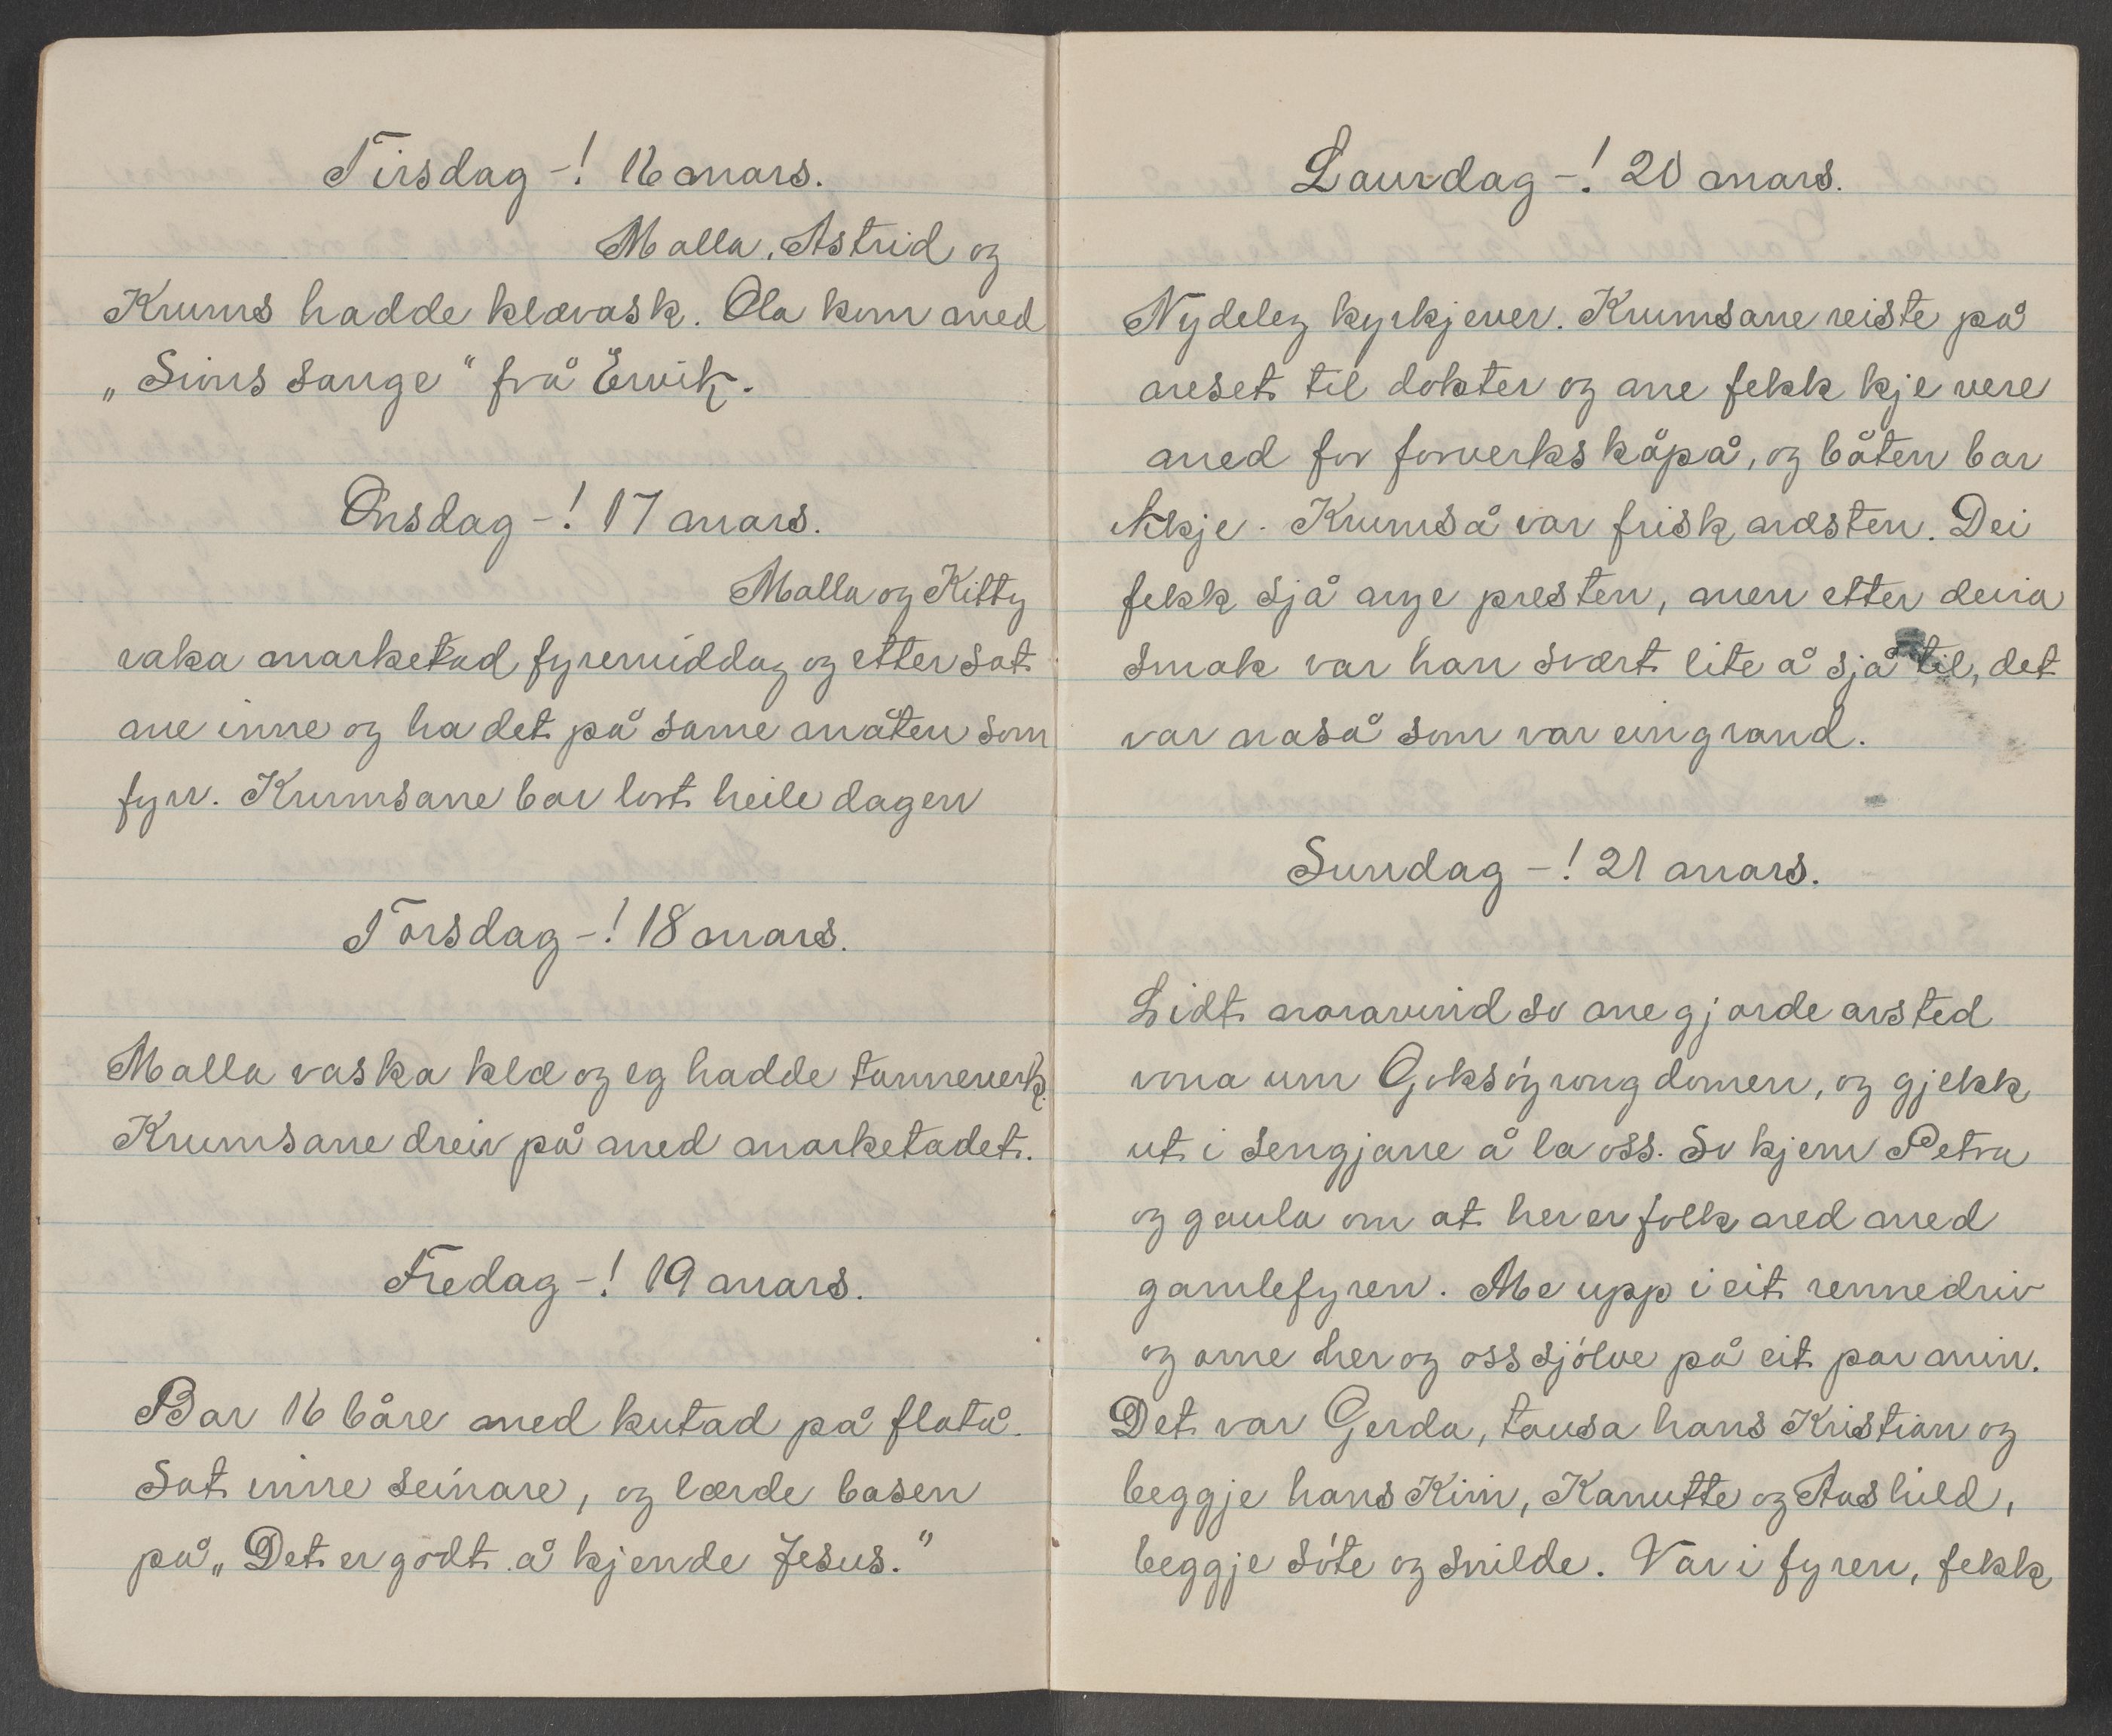 Tirsdag -! 16 mars.
Malla, Astrid og
Krums hadde klævask. Ola kom med
„Sions sange" frå Ervik.
Onsdag -! 17 mars.
Malla og Kitty
raka marketad fyremiddag og etter sat
me inne og ha det på same måten som
fyrr. Krumsane bar lort heile dagen
Torsdag -! 18 mars.
Malla vaska klæ og eg hadde tanneverk.
Krumsane dreiv på med marketadet.
Fredag -! 19 mars.
Bar 16 båre med kutad på flatå.
Sat inne seinare, og lærde basen
på „Det er godt å kjende Jesus."
Laurdag -! 20 mars.
Nydeleg kyrkjever. Krumsane reiste på
neset til dokter og me fekk kje vere
med for forverks kåpå, og båten bar
ikkje. Krumså var frisk næsten. Dei
fekk sjå nye presten, men etter deira
smak var han svært lite å sjå til, det
var naså som var ein grand.
Sundag -! 21 mars.
Lidt noravind so me gjorde avsted
vona um Goksöyrungdomen, og gjekk
ut i sengjane å la oss. So kjem Petra
og gaula om at her er folk ned med
gamlefyren. Me upp i eit rennedriv
og orne her og oss sjölve på eit par min.
Det var Gerda, tausa hans Kristian og
beggje hans Kim, Kanutte og Aashild,
beggje söte og snilde. Var i fyren, fekk